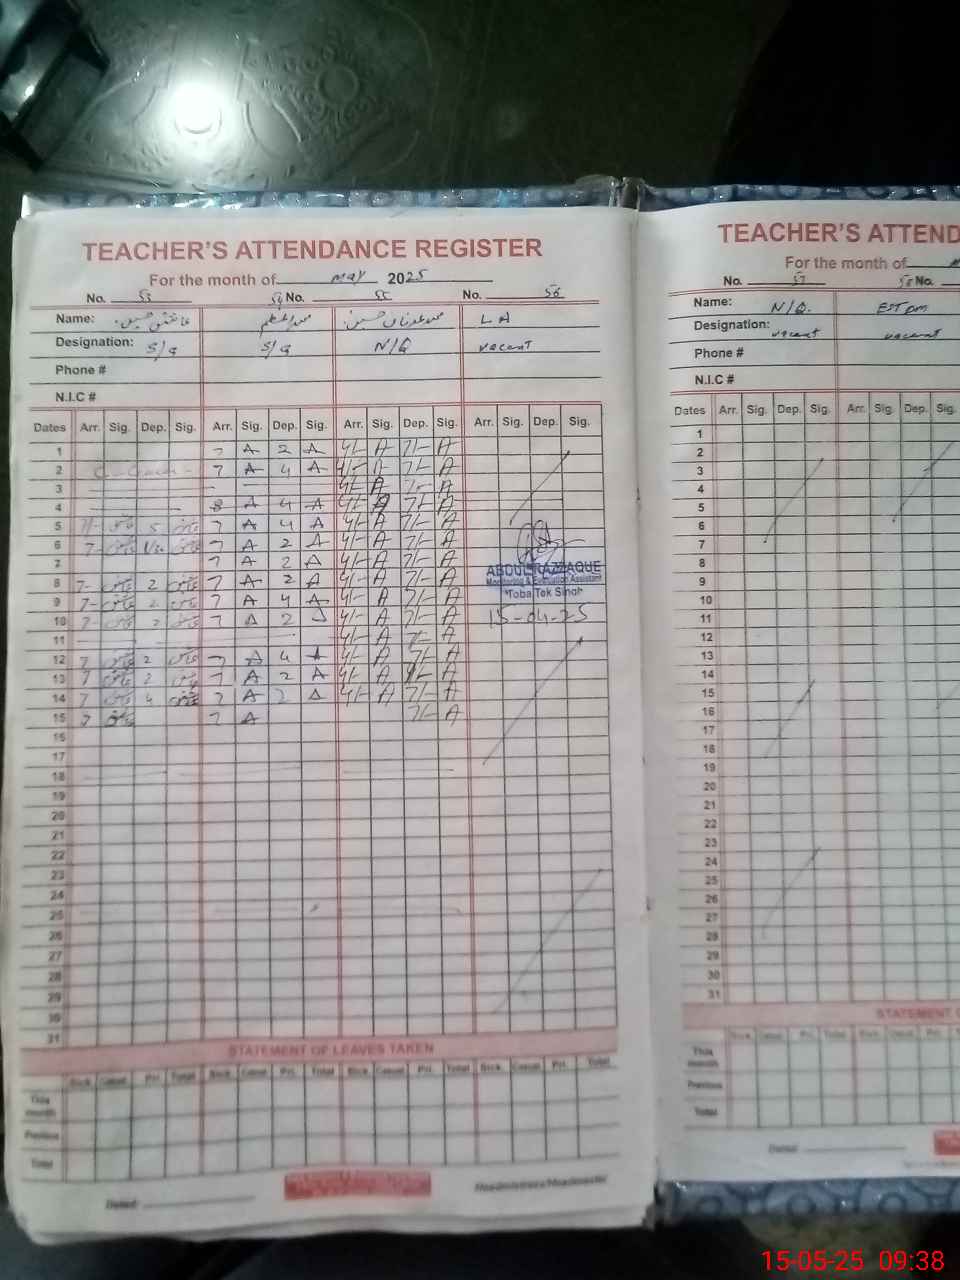 TEACHER'S ATTENDANCE REGISTER
For the month of May 2025
No. 53 54 No. 55 No. 56
Name: عاشق حسین محمد اعظم محمد عدنان حسین L A
Designation: S/G S/G N/Q vacant
Phone #
N.I.C #
Dates Arr. Sig. Dep. Sig. Arr. Sig. Dep. Sig. Arr. Sig. Dep. Sig. Arr. Sig. Dep. Sig.
1 7 A 2 A 4/- A 7/- A
2 7 A 4 A 4/- A 7/- A
3 4/- A 7/- A
4 8 A 4 A 4/- A 7/- A
5 7/- عاشق 5 عاشق 7 A 4 A 4/- A 7/- A
6 7- عاشق عاشق 7 A 2 A 4/- A 7/- A
7 7 A 2 A 4/- A 7/- A
8 7- عاشق 2 عاشق 7 A 2 A 4/- A 7/- A
9 7- عاشق 2 عاشق 7 A 4 A 4/- A 7/- A
10 7- عاشق 2 عاشق 7 A 2 A 4/- A 7/- A
11 4/- A 7/- A
12 7 عاشق 2 عاشق 7 A 4 A 4/- A 7/- A
13 7 عاشق 2 عاشق 7 A 2 A 4/- A 7/- A
14 7 عاشق 4 عاشق 7 A 2 A 4/- A 7/- A
15 7 عاشق 7 A 7/- A
16
17
18
19
20
21
22
23
24
25
26
27
28
29
30
31
ABDUL RAZZAQUE
Monitoring & Evaluation Assistant
Toba Tek Singh
15-04-25
STATEMENT OF LEAVES TAKEN
Sick Casual Pri. Total Sick Casual Pri. Total Sick Casual Pri. Total Sick Casual Pri. Total
This month
Previous
Total
Dated:
Headmistress/Headmaster
TEACHER'S ATTEND
For the month of
No. 57 58 No.
Name: N/Q. EST pm
Designation: vacant vacant
Phone #
N.I.C #
Dates Arr. Sig. Dep. Sig. Arr. Sig. Dep. Sig.
1
2
3
4
5
6
7
8
9
10
11
12
13
14
15
16
17
18
19
20
21
22
23
24
25
26
27
28
29
30
31
STATEMENT
Sick Casual Pri. Total Sick Casual Pri.
This month
Previous
Total
Dated:
15-05-25 09:38